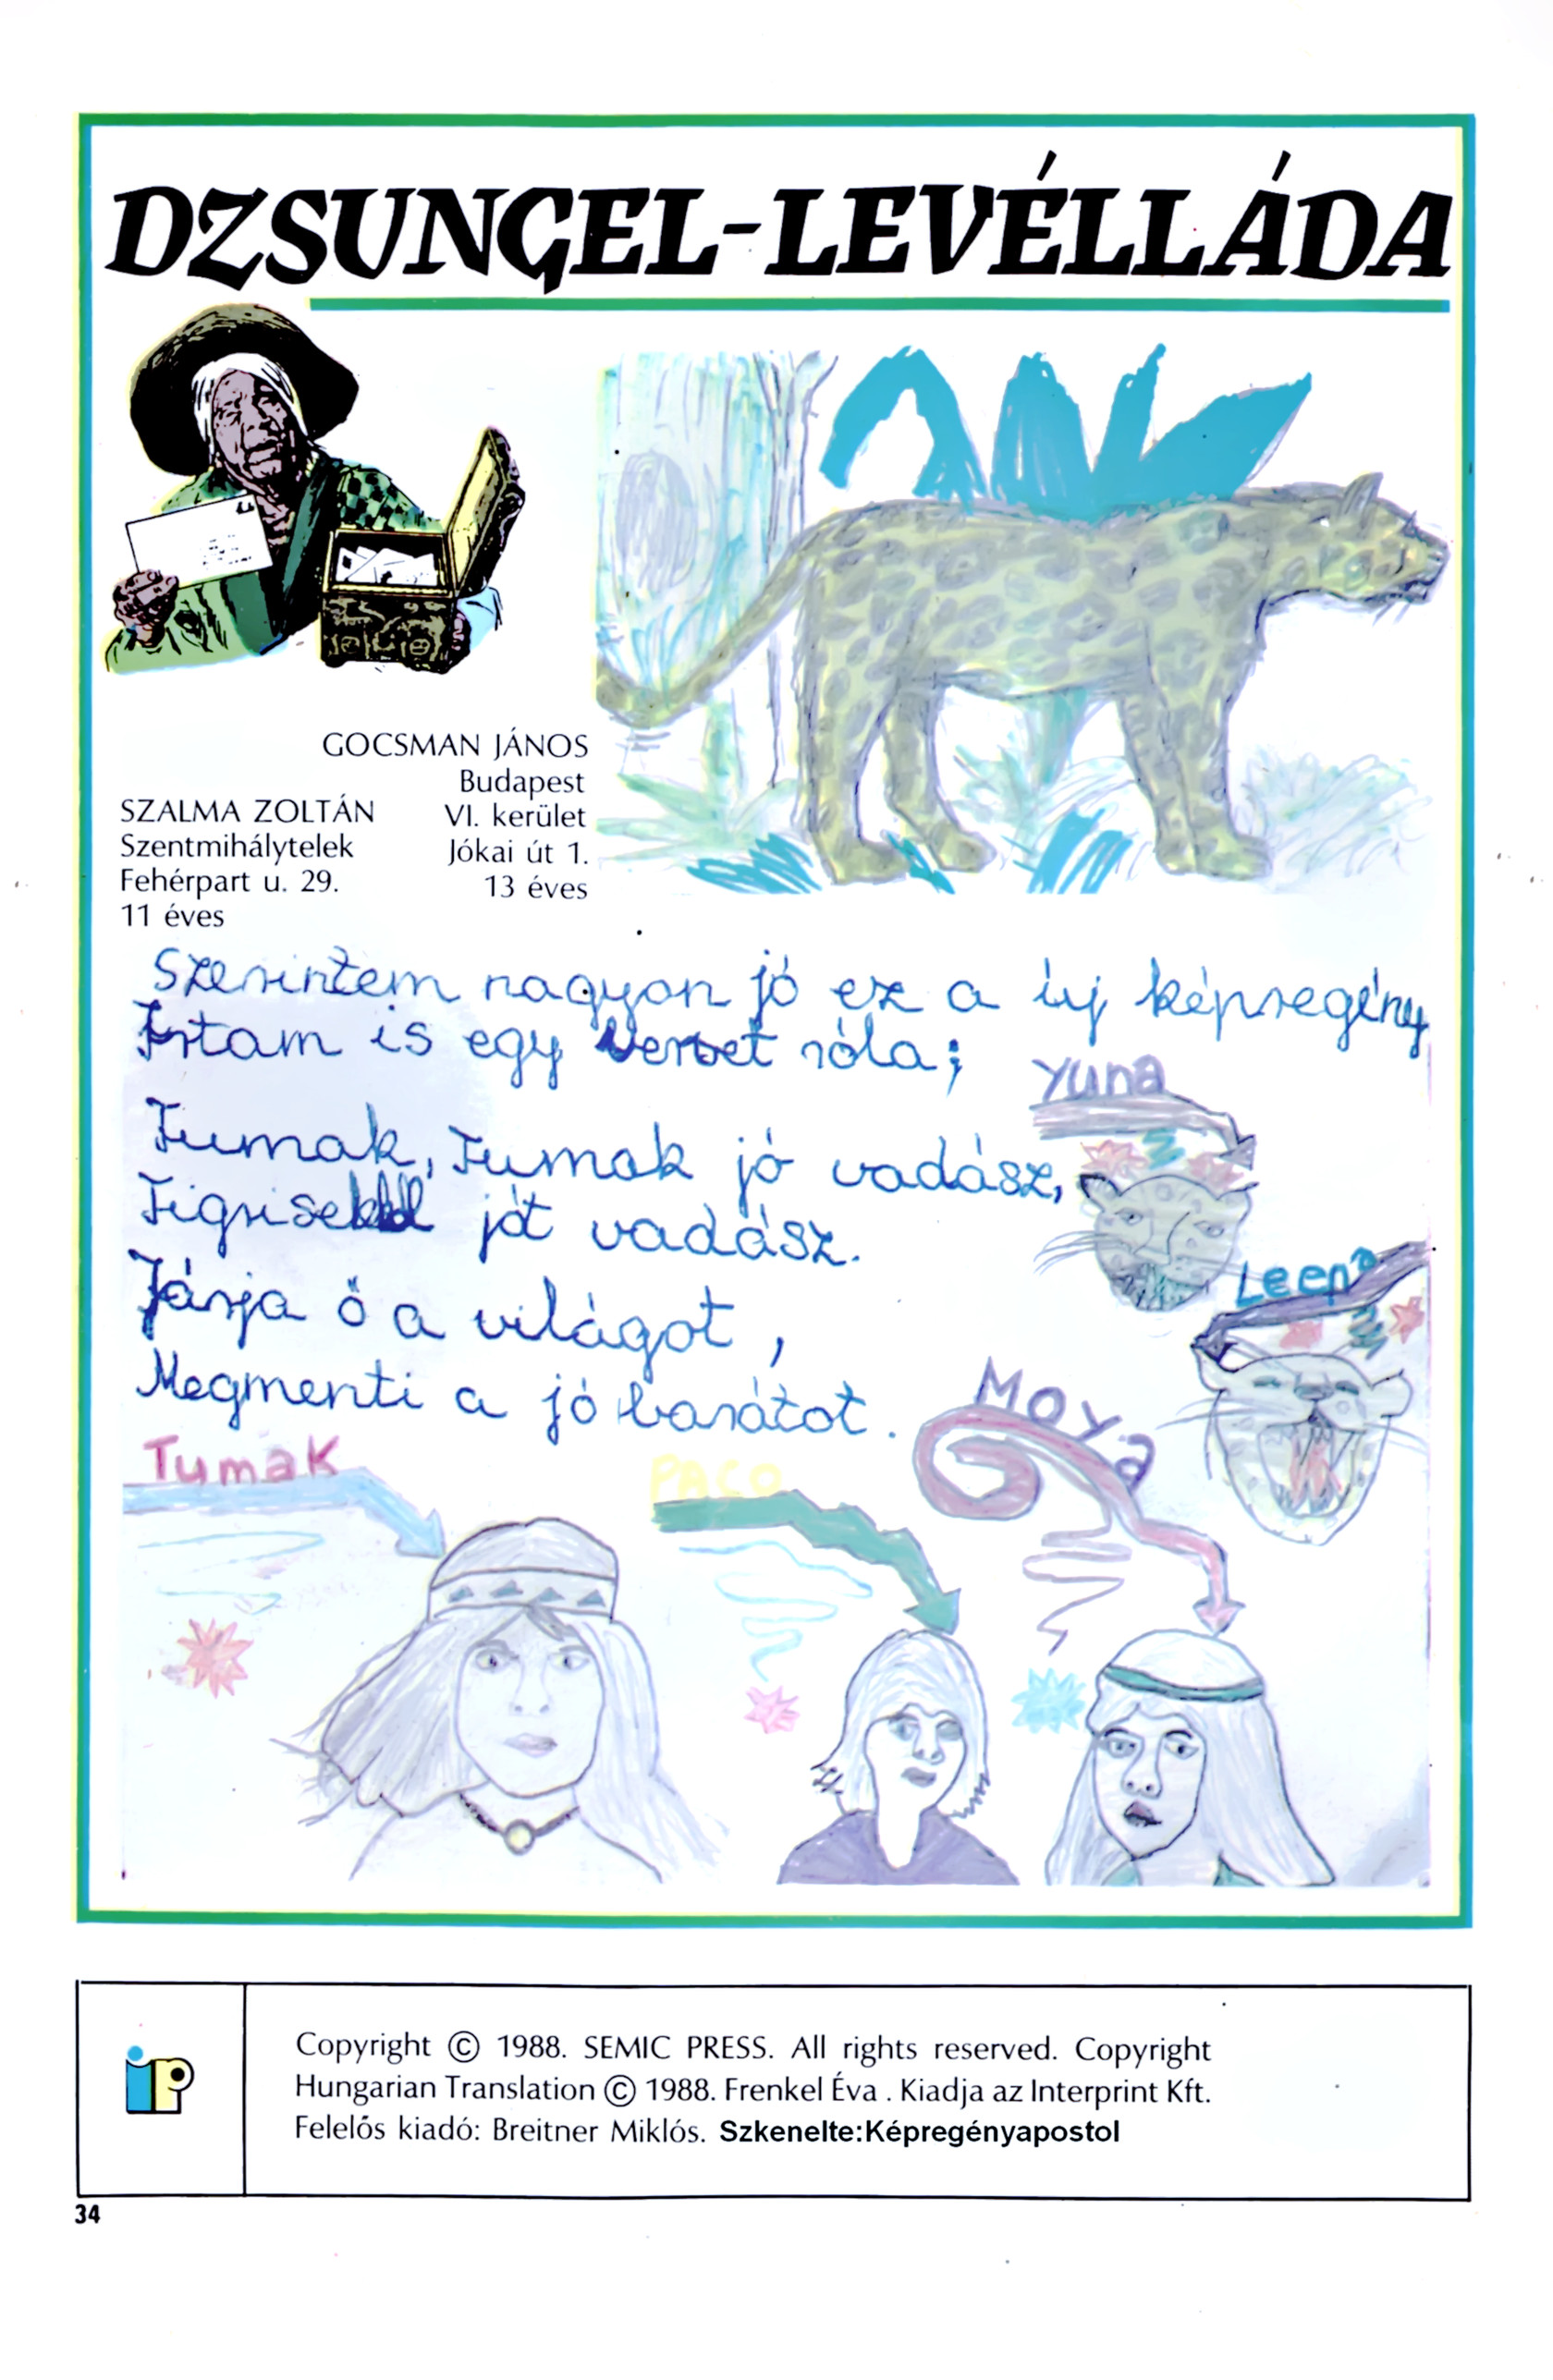 DZSUNGEL-LEVÉLLÁDA
GOCSMAN JÁNOS
Budapest
VI. kerület
Jókai út 1.
13 éves
SZALMA ZOLTÁN
Szentmihálytelek
Fehérpart u. 29.
11 éves
Szerintem nagyon jó ez a új képregény
Irtam is egy verset róla;
Tumak, Tumak jó vadász,
jót vadász.
Járja ő a világot,
Megmenti a jó barátot.
Yuna
Leena
Moya
Tumak
PACO
iP
Copyright © 1988. SEMIC PRESS. All rights reserved. Copyright
Hungarian Translation © 1988. Frenkel Éva . Kiadja az Interprint Kft.
Felelős kiadó: Breitner Miklós. Szkenelte:Képregényapostol
34